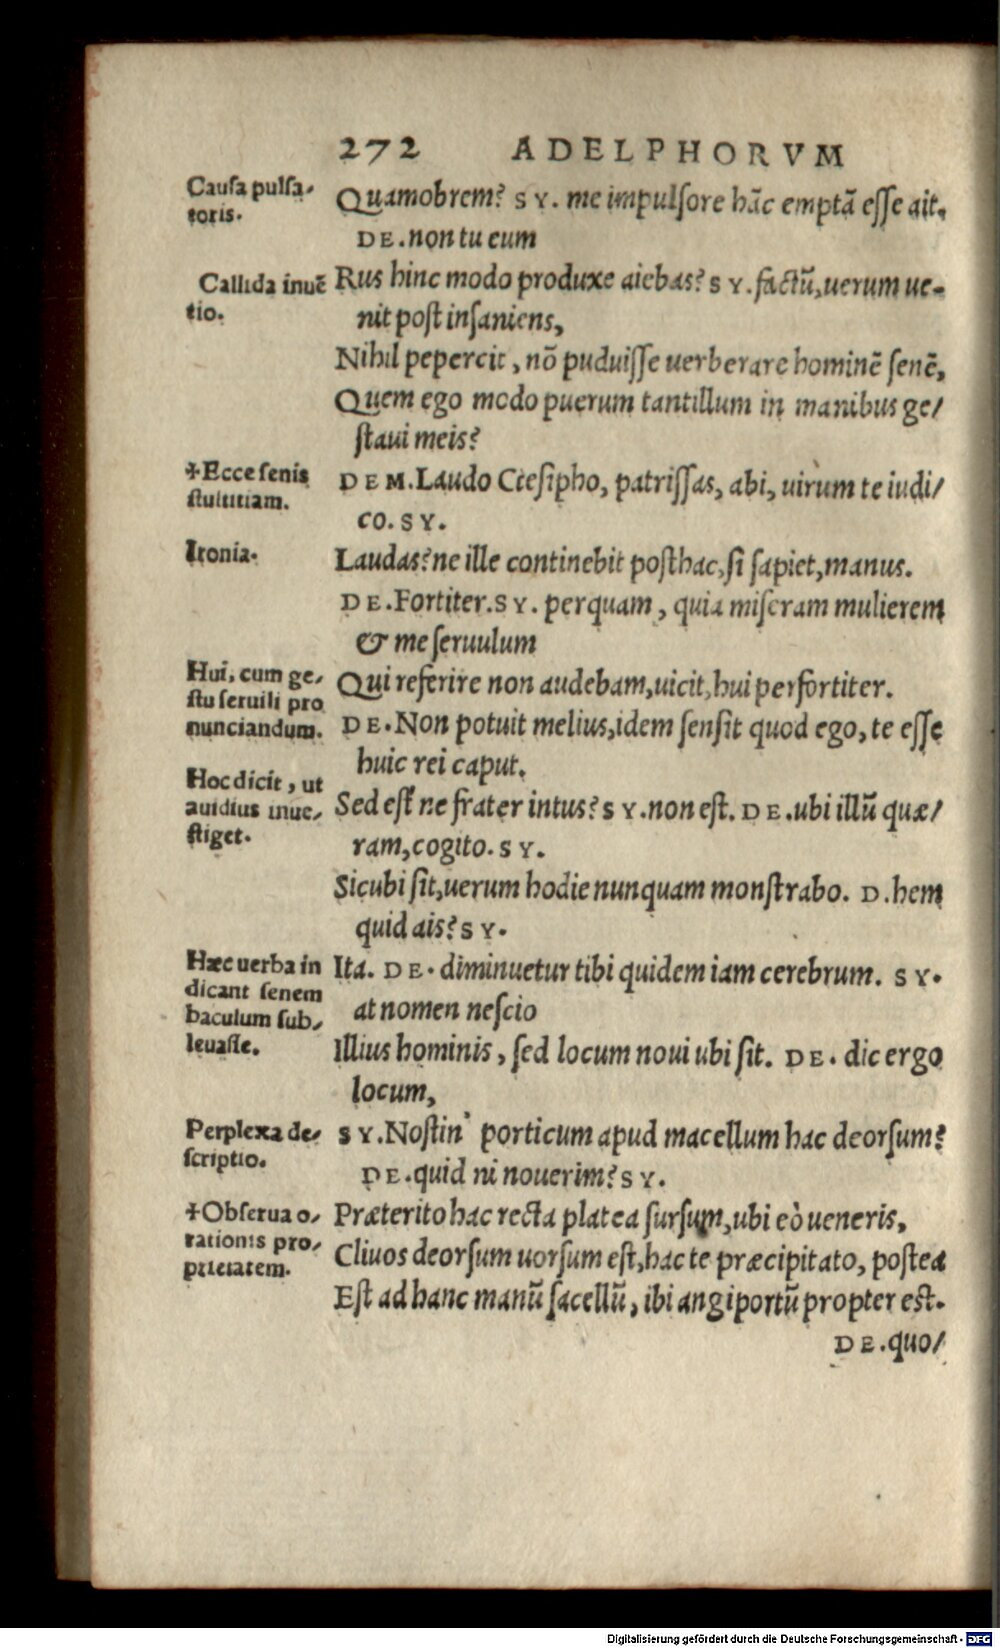 272 ADELPHORVM
Causa pulsa-
toris.
Quamobrem? SY. me impulsore hāc emptā esse ait.
DE. non tu eum
Callida inuē
tio.
Rus hinc modo produxe aiebas? SY. factū, uerum ue-
nit post insaniens,
Nihil pepercit, nō puduisse uerberare hominē senē,
Quem ego modo puerum tantillum in manibus ge/
staui meis?
✝Ecce senis
stultitiam.
DEM. Laudo Ctesipho, patrissas, abi, uirum te iudi/
co. SY.
Ironia.
Laudas? ne ille continebit posthac, si sapiet, manus.
DE. Fortiter. SY. perquam, quia miseram mulierem
& me seruulum
Hui, cum ge-
stu seruili pro
nunciandum.
Qui referire non audebam, uicit, hui perfortiter.
DE. Non potuit melius, idem sensit quod ego, te esse
huic rei caput.
Hoc dicit, ut
auidius inue-
stiget.
Sed est ne frater intus? SY. non est. DE. ubi illū quæ/
ram, cogito. SY.
Sicubi sit, uerum hodie nunquam monstrabo. D. hem
quid ais? SY.
Hæc uerba in
dicant senem
baculum sub-
leuasse.
Ita. DE. diminuetur tibi quidem iam cerebrum. SY.
at nomen nescio
Illius hominis, sed locum noui ubi sit. DE. dic ergo
locum,
Perplexa de-
scriptio.
SY. Nostin' porticum apud macellum hac deorsum?
DE. quid ni nouerim? SY.
✝Obserua o-
rationis pro-
prietatem.
Præterito hac recta platea sursum, ubi eò ueneris,
Cliuos deorsum uorsum est, hac te præcipitato, postea
Est ad hanc manū sacellū, ibi angiportū propter est.
DE. quo/
Digitalisierung gefördert durch die Deutsche Forschungsgemeinschaft - DFG